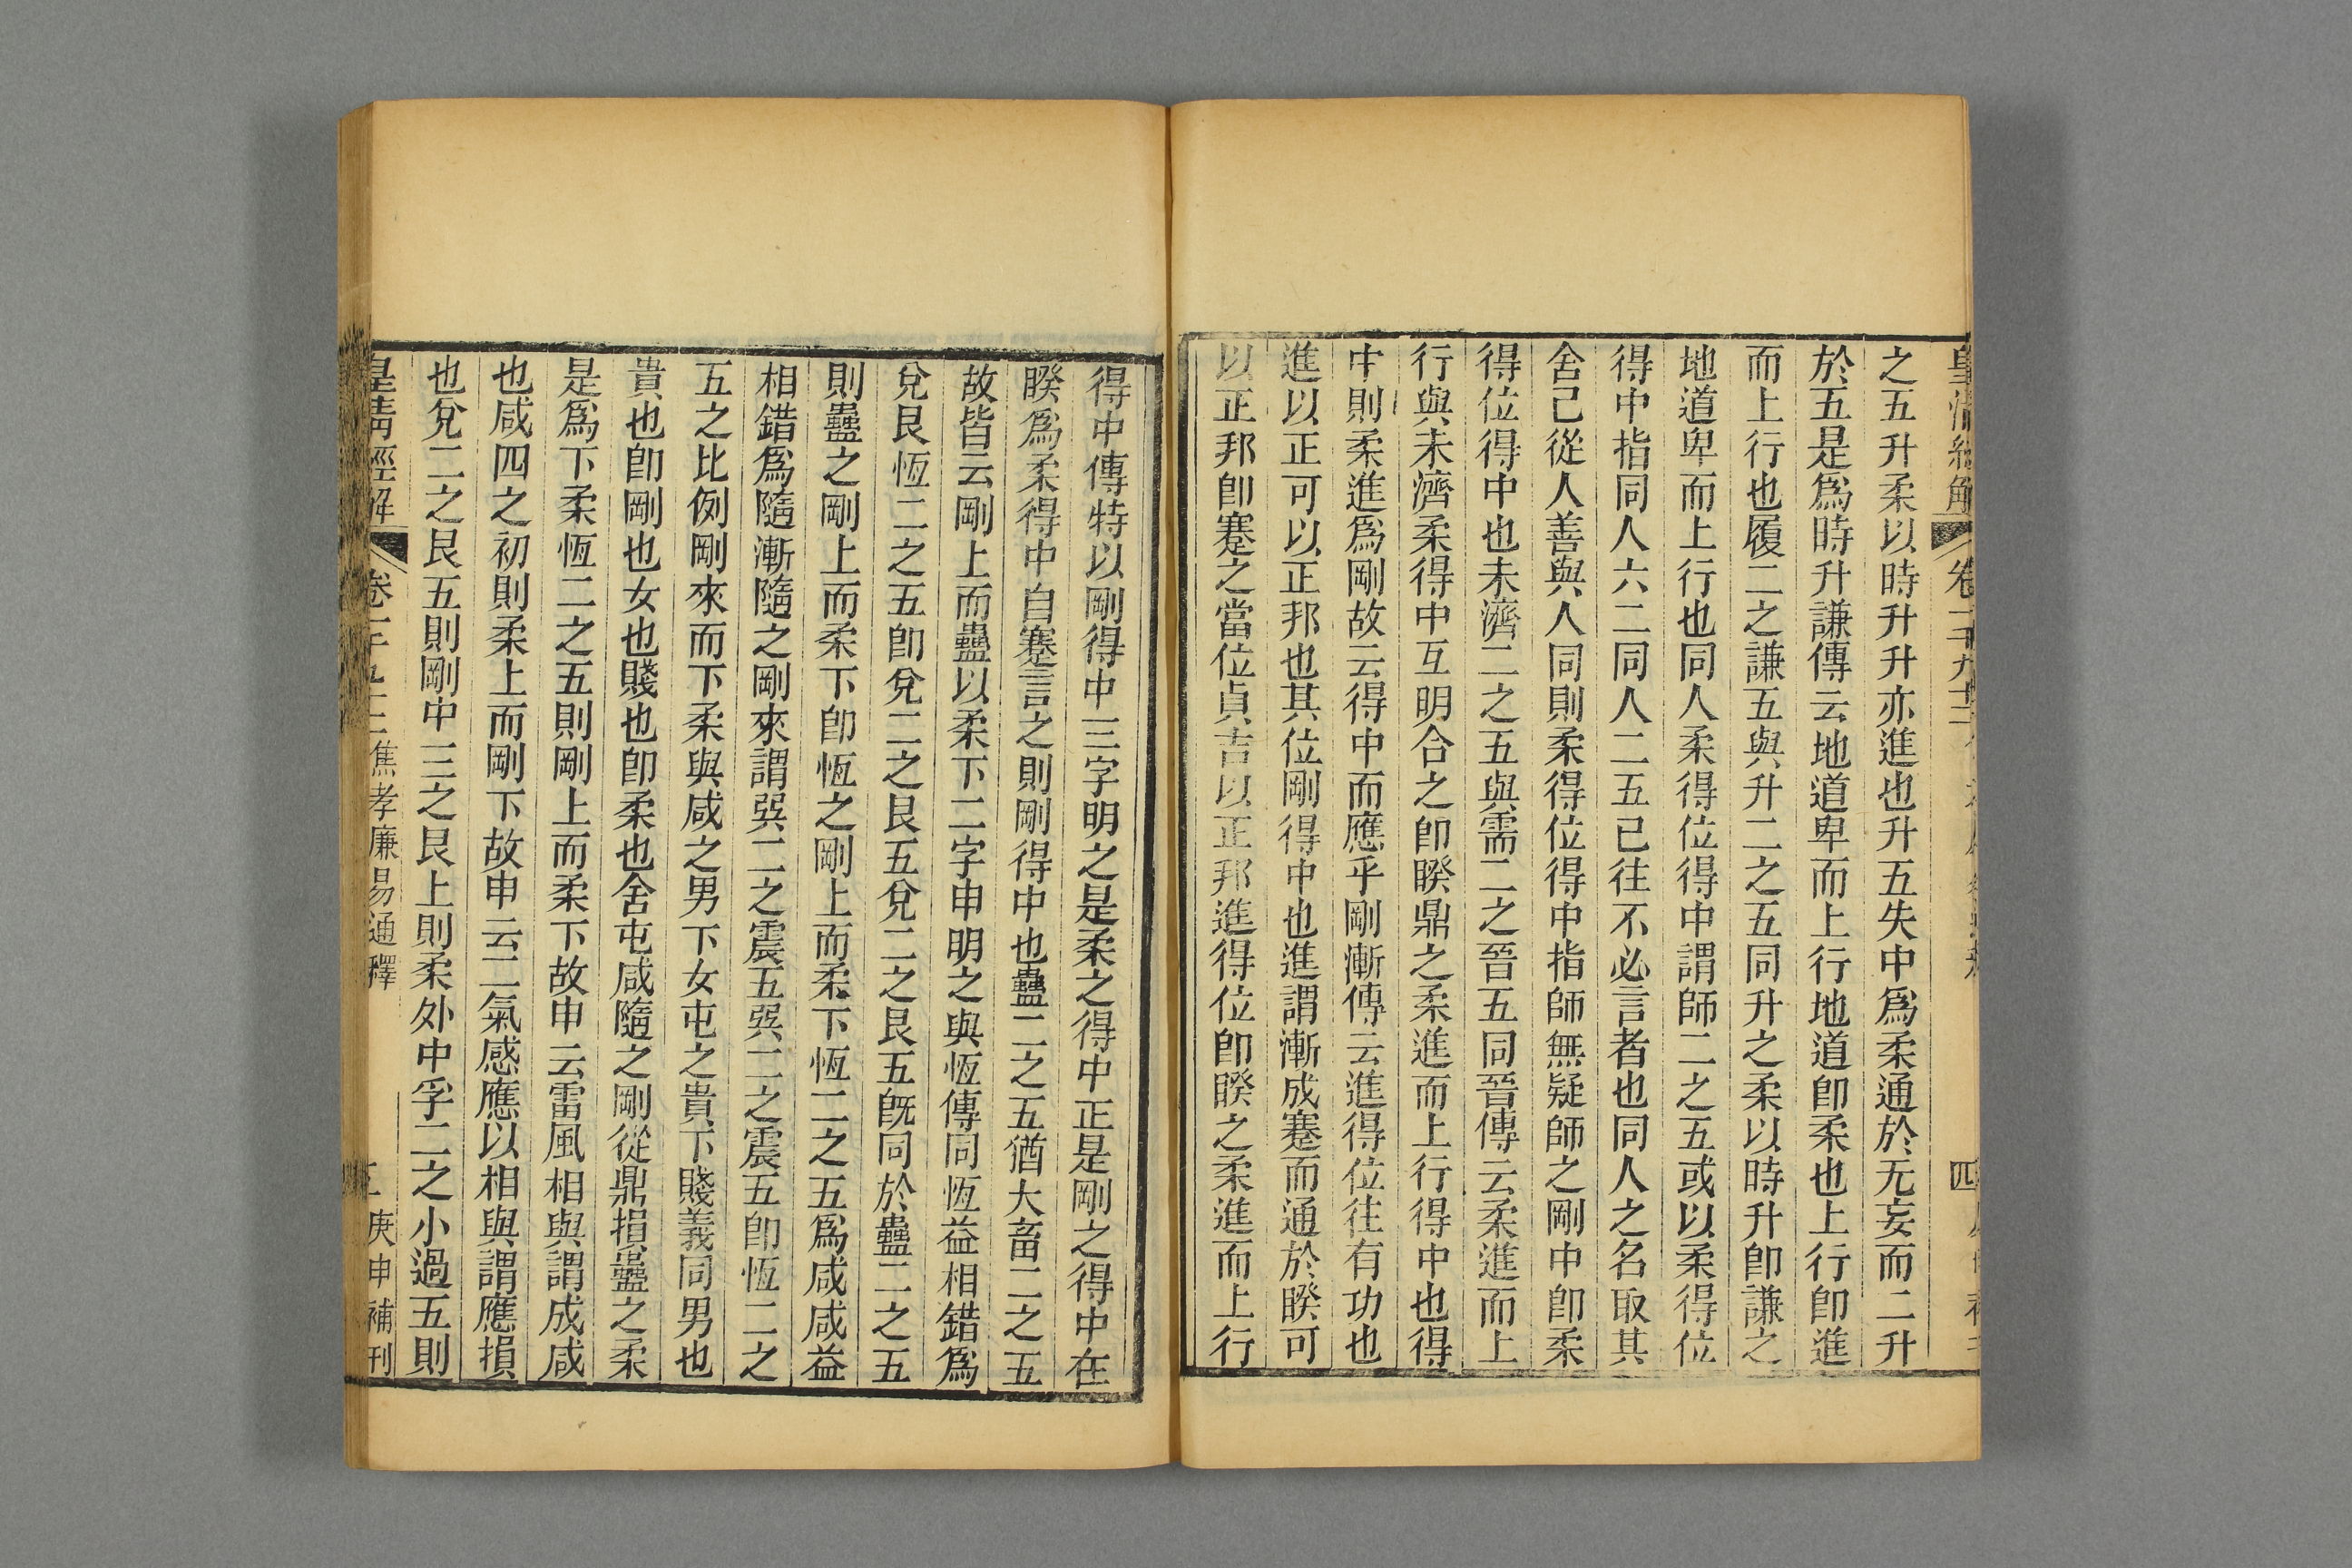 皇清經解 卷一千九十三 四
之五升柔以時升升亦進也升五失中爲柔通於无妄而二升
於五是爲時升謙傳云地道卑而上行地道卽柔也上行卽進
而上行也履二之謙五與升二之五同升之柔以時升卽謙之
地道卑而上行也同人柔得位得中謂師二之五或以柔得位
得中指同人六二同人二五已往不必言者也同人之名取其
舍己從人善與人同則柔得位得中指師無疑師之剛中卽柔
得位得中也未濟二之五與需二之晉五同晉傳云柔進而上
行與未濟柔得中互明合之卽睽鼎之柔進而上行得中也得
中則柔進爲剛故云得中而應乎剛漸傳云進得位往有功也
進以正可以正邦也其位剛得中也進謂漸成蹇而通於睽可
以正邦卽蹇之當位貞吉以正邦進得位卽睽之柔進而上行
得中傳特以剛得中三字明之是柔之得中正是剛之得中在
睽爲柔得中自蹇言之則剛得中也蠱二之五猶大畜二之五
故皆云剛上而蠱以柔下二字申明之與恆傳同恆益相錯爲
兌艮恆二之五卽兌二之艮五兌二之艮五旣同於蠱二之五
則蠱之剛上而柔下卽恆之剛上而柔下恆二之五爲咸咸益
相錯爲隨漸隨之剛來謂巽二之震五巽二之震五卽恆二之
五之比例剛來而下柔與咸之男下女屯之貴下賤義同男也
貴也卽剛也女也賤也卽柔也舍屯咸隨之剛從鼎損蠱之柔
是爲下柔恆二之五則剛上而柔下故申云雷風相與謂成咸
也咸四之初則柔上而剛下故申云二氣感應以相與謂應損
也兌二之艮五則剛中三之艮上則柔外中孚二之小過五則
皇清經解 卷一千九十三 焦孝廉易通釋 五 庚申補刊